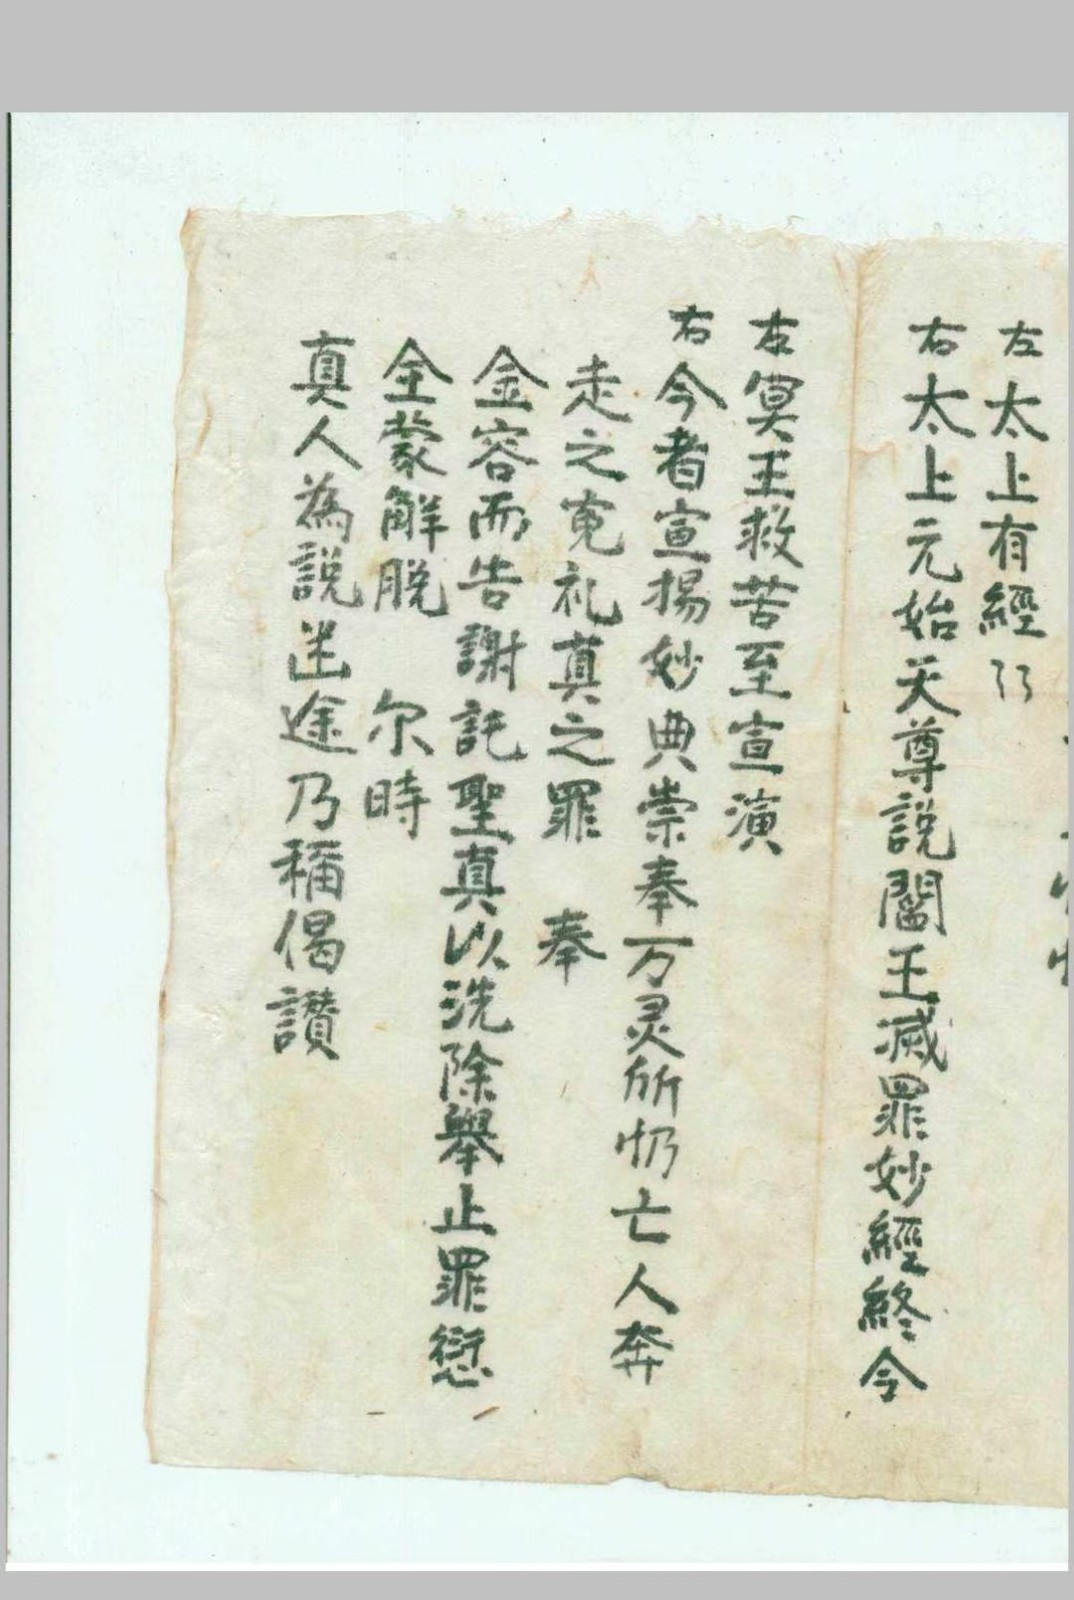 左太上有經
右太上元始天尊說閻王滅罪妙經終今
左冥王救苦至宣演
右今者宣揚妙典崇奉万灵所忉亡人奔
走之寃礼真之罪　奉
金容而告謝託聖真以洗除舉止罪愆
全蒙解脫　尔時
真人為說迷途乃稱偈讃